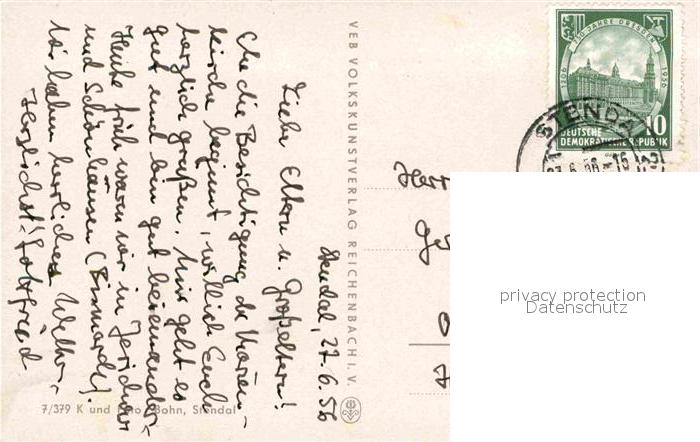 Stendal, 27.6.56
Liebe Eltern u. Großeltern!
Ehe die Besichtigung der Marien-
kirche beginnt, will ich Euch
herzlich grüßen. Mir geht es
gut und bin gut beieinander.
Heute früh waren wir in Jerichow
und Schönhausen (Bismarck).
Wir haben herrliches Wetter.
Herzlichst Gottfried
VEB VOLKSKUNSTVERLAG REICHENBACH I. V.
7/379 K und Bohn, Stendal
750 JAHRE DRESDEN
1206
1956
10
DEUTSCHE
DEMOKRATISCHE REPUBLIK
STENDA
6.56-16
Herr
privacy protection
Datenschutz